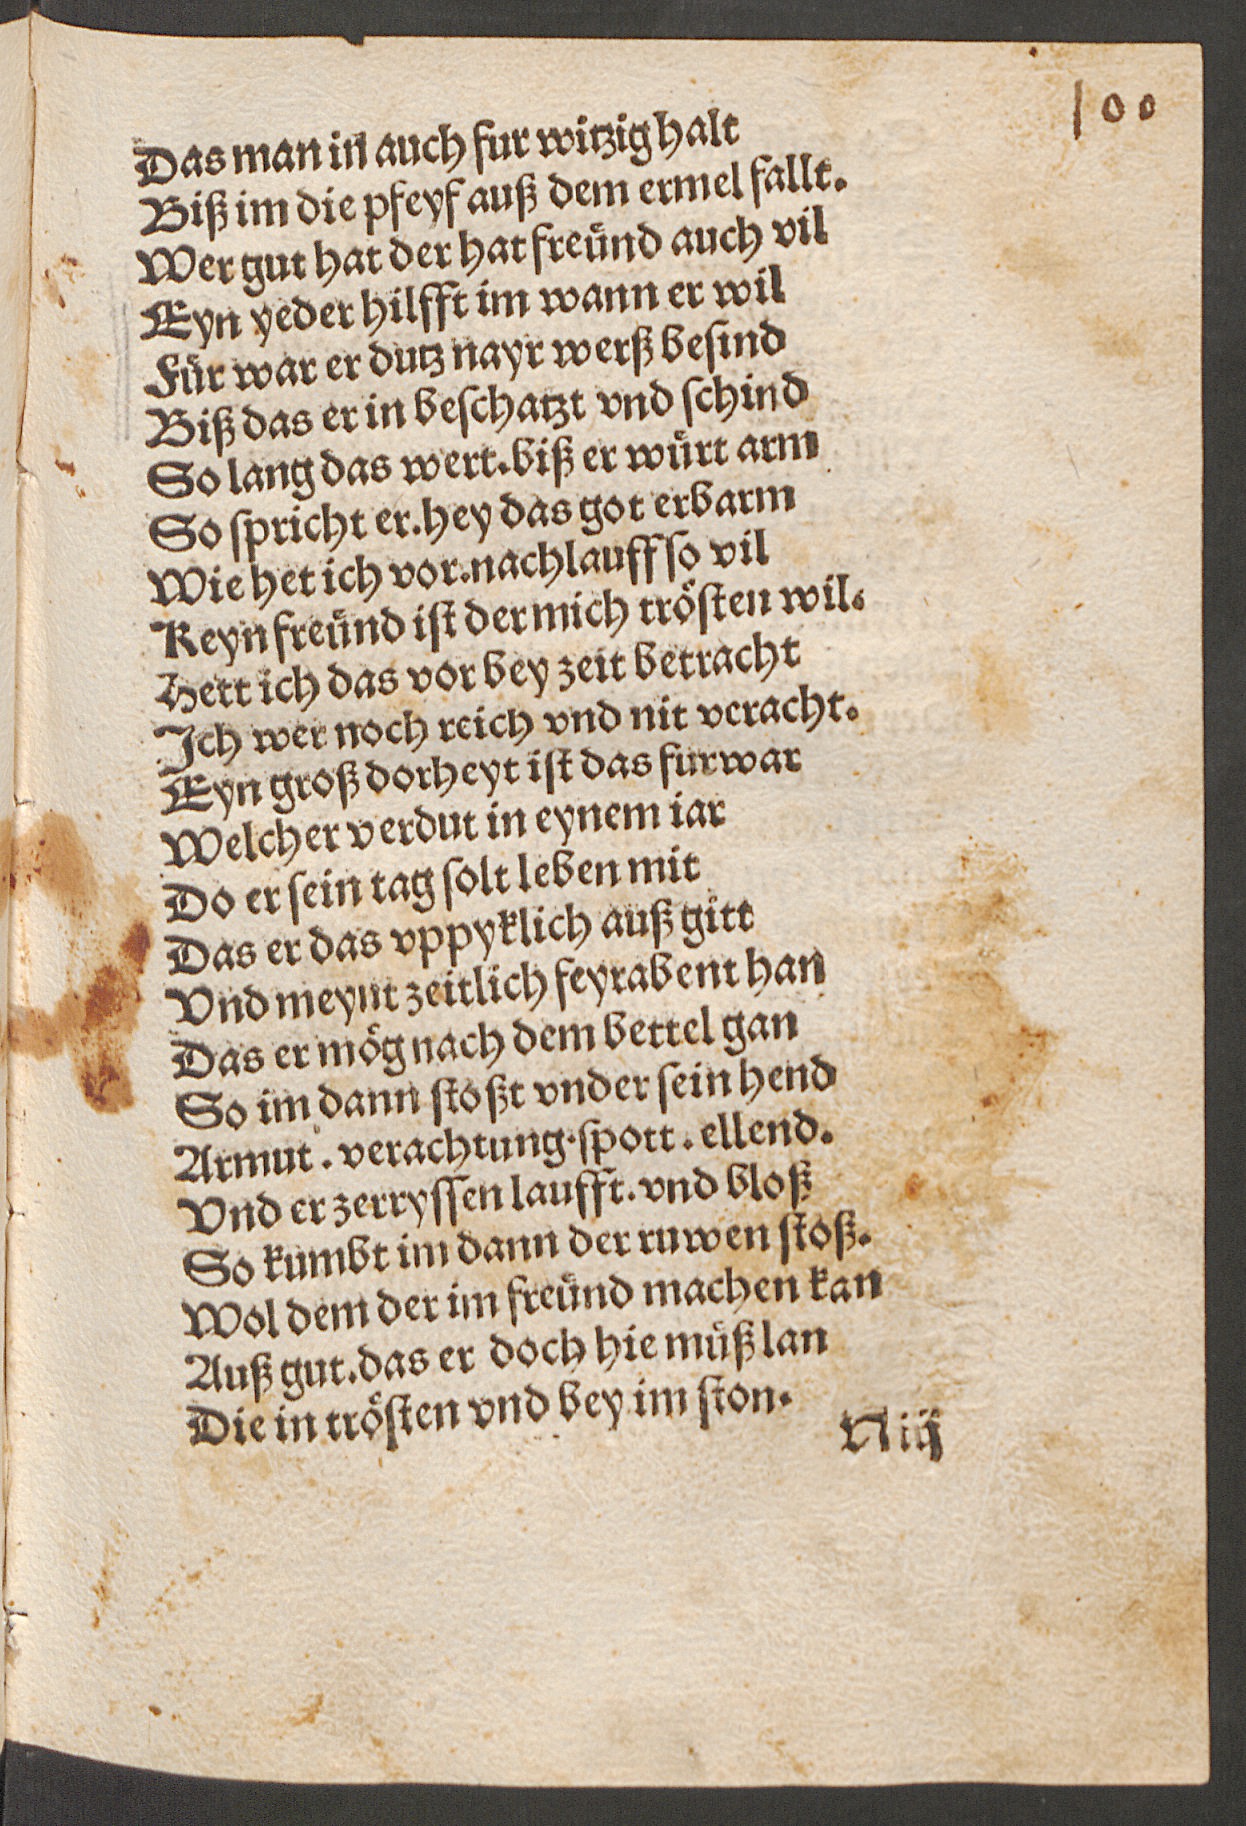 100
Das man in auch fur witzig halt
Biß im die pfeyf auß dem ermel fallt.
Wer gut hat der hat freünd auch vil
Eyn yeder hilfft im wann er wil
Für war er dutz nayr werß besind
Biß das er in beschatzt vnd schind
So lang das wert.biß er würt arm
So spricht er.hey das got erbarm
Wie het ich vor.nachlauff so vil
Keyn freünd ist der mich trösten wil.
Hett ich das vor bey zeit betracht
Ich wer noch reich vnd nit veracht.
Eyn groß dorheyt ist das fur war
Welcher verdut in eynem iar
Do er sein tag solt leben mit
Das er das vppyklich auß gitt
Vnd meynt zeitlich feyrabent han
Das er mög nach dem bettel gan
So im dann stoßt vnder sein hend
Armut . verachtung.spott . ellend.
Vnd er zerryssen laufft.vnd bloß
So kumbt im dann der ruwen stoß.
Wol dem der im freünd machen kan
Auß gut.das er doch hie müß lan
Die in trösten vnd bey im ston.
N iij